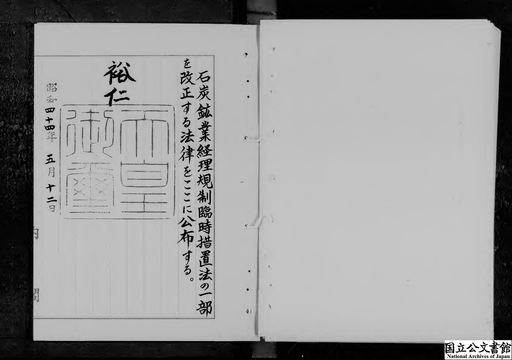 石炭鉱業経理規制臨時措置法の一部
を改正する法律をここに公布する。
裕仁
天皇
御璽
昭和四十四年五月十二日
内閣
国立公文書館
National Archives of Japan